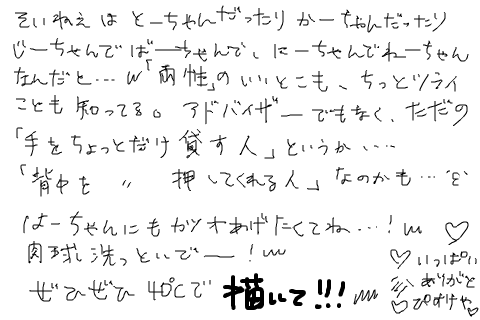 そいねえは とーちゃんだったり かーちゃんだったり
じーちゃんで ばーちゃんで、にーちゃんで ねーちゃん
なんだと…w「両性」の いいとこも、ちっとツライ
ことも 知ってる。アドバイザーでもなく、ただの
「手をちょっとだけ 貸す人」というか…
「背中を 〃 押してくれる人」なのかも…´ε`
はーちゃんにもカツオあげたくてね…! w ♡
肉球洗っといでー! w
ぜひぜひ 40℃で 描いて!!! w
♡いっぱい
ありがと
♡ぴすけや♡